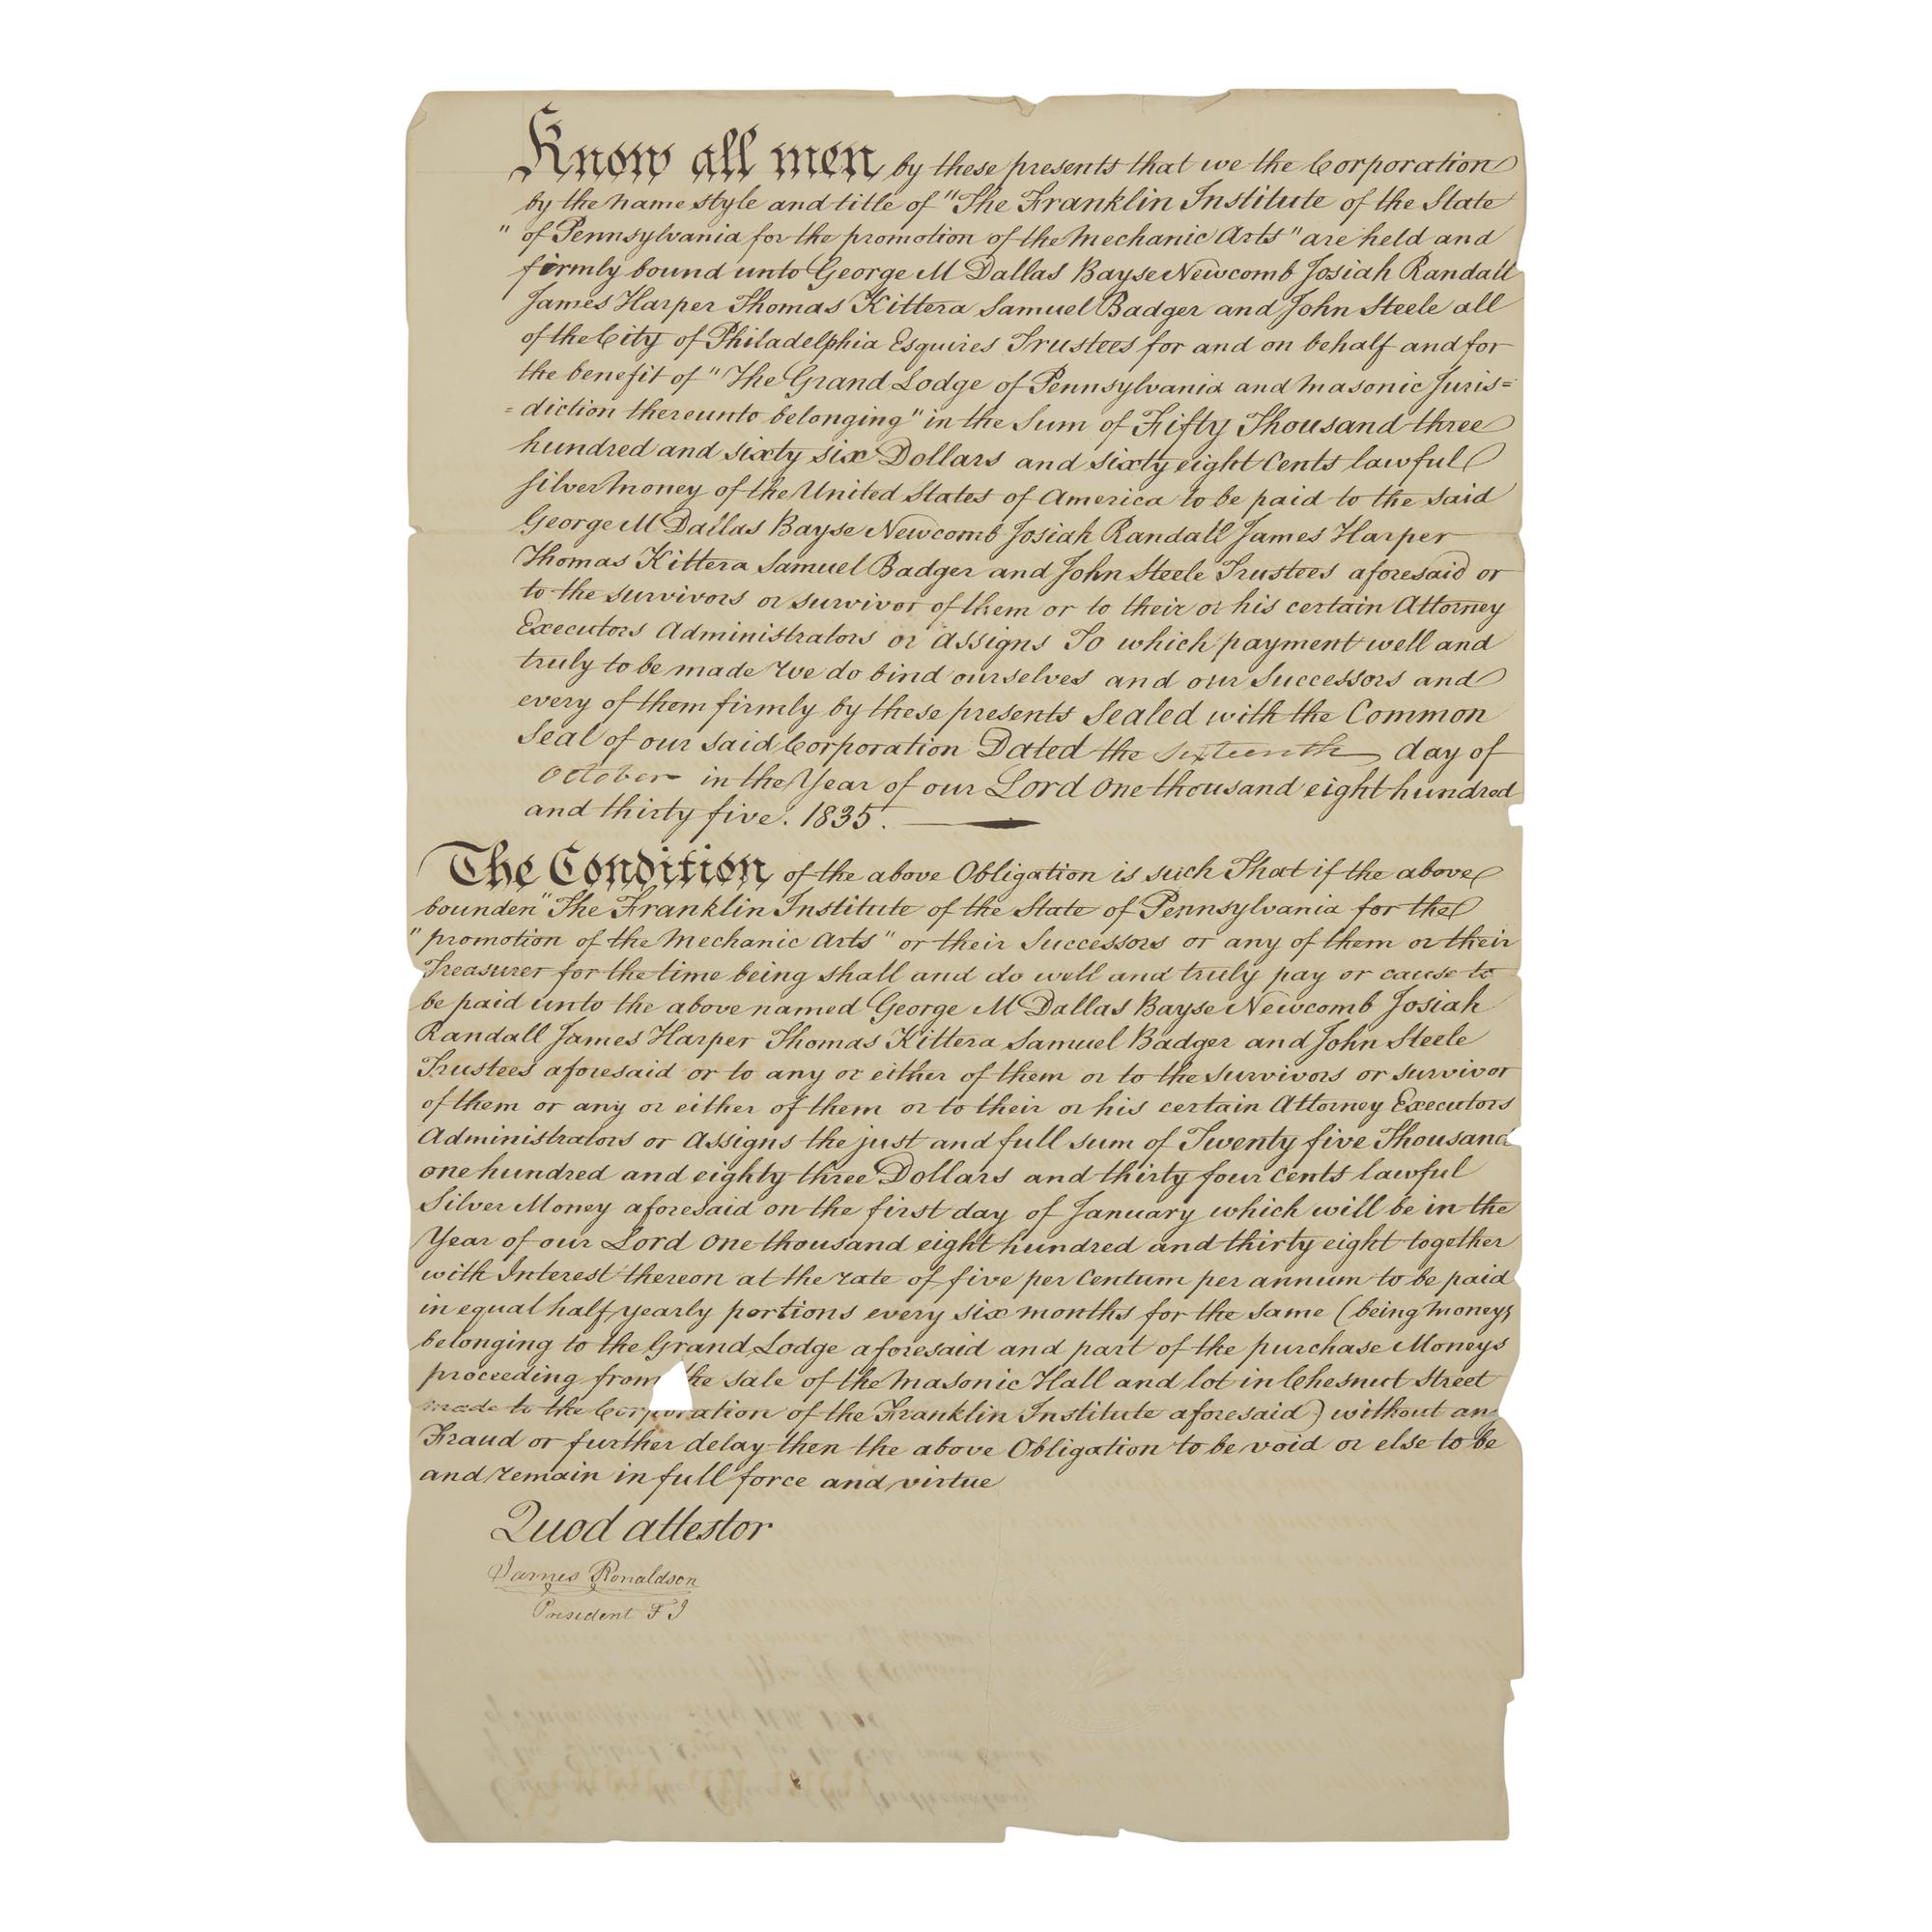 Know all men by these presents that we the Corporation
by the name style and title of "The Franklin Institute of the State
" of Pennsylvania for the promotion of the Mechanic Arts" are held and
firmly bound unto George M Dallas Bayse Newcomb Josiah Randall
James Harper Thomas Kittera Samuel Badger and John Steele all
of the City of Philadelphia Esquires Trustees for and on behalf and for
the benefit of "The Grand Lodge of Pennsylvania and Masonic Juris=
=diction thereunto belonging" in the Sum of Fifty Thousand three
hundred and sixty six Dollars and sixty eight Cents lawful
silver money of the United States of America to be paid to the said
George M Dallas Bayse Newcomb Josiah Randall James Harper
Thomas Kittera Samuel Badger and John Steele Trustees aforesaid or
to the survivors or survivor of them or to their or his certain Attorney
Executors Administrators or Assigns To which payment well and
truly to be made we do bind ourselves and our Successors and
every of them firmly by these presents Sealed with the Common
Seal of our said Corporation Dated the sixteenth day of
October in the Year of our Lord One thousand eight hundred
and thirty five. 1835.
The Condition of the above Obligation is such That if the above
bounden "The Franklin Institute of the State of Pennsylvania for the
" promotion of the Mechanic Arts" or their Successors or any of them or their
Treasurer for the time being shall and do well and truly pay or cause to
be paid unto the above named George M Dallas Bayse Newcomb Josiah
Randall James Harper Thomas Kittera Samuel Badger and John Steele
Trustees aforesaid or to any or either of them or to the survivors or survivor
of them or any or either of them or to their or his certain Attorney Executors
Administrators or Assigns the just and full sum of Twenty five Thousand
one hundred and eighty three Dollars and thirty four cents lawful
Silver Money aforesaid on the first day of January which will be in the
Year of our Lord One thousand eight hundred and thirty eight together
with Interest thereon at the rate of five per Centum per annum to be paid
in equal half yearly portions every six months for the same (being moneys
belonging to the Grand Lodge aforesaid and part of the purchase Moneys
proceeding from the sale of the Masonic Hall and lot in Chesnut Street
made to the Corporation of the Franklin Institute aforesaid) without any
Fraud or further delay then the above Obligation to be void or else to be
and remain in full force and virtue
Quod attestor
James Ronaldson
President F I